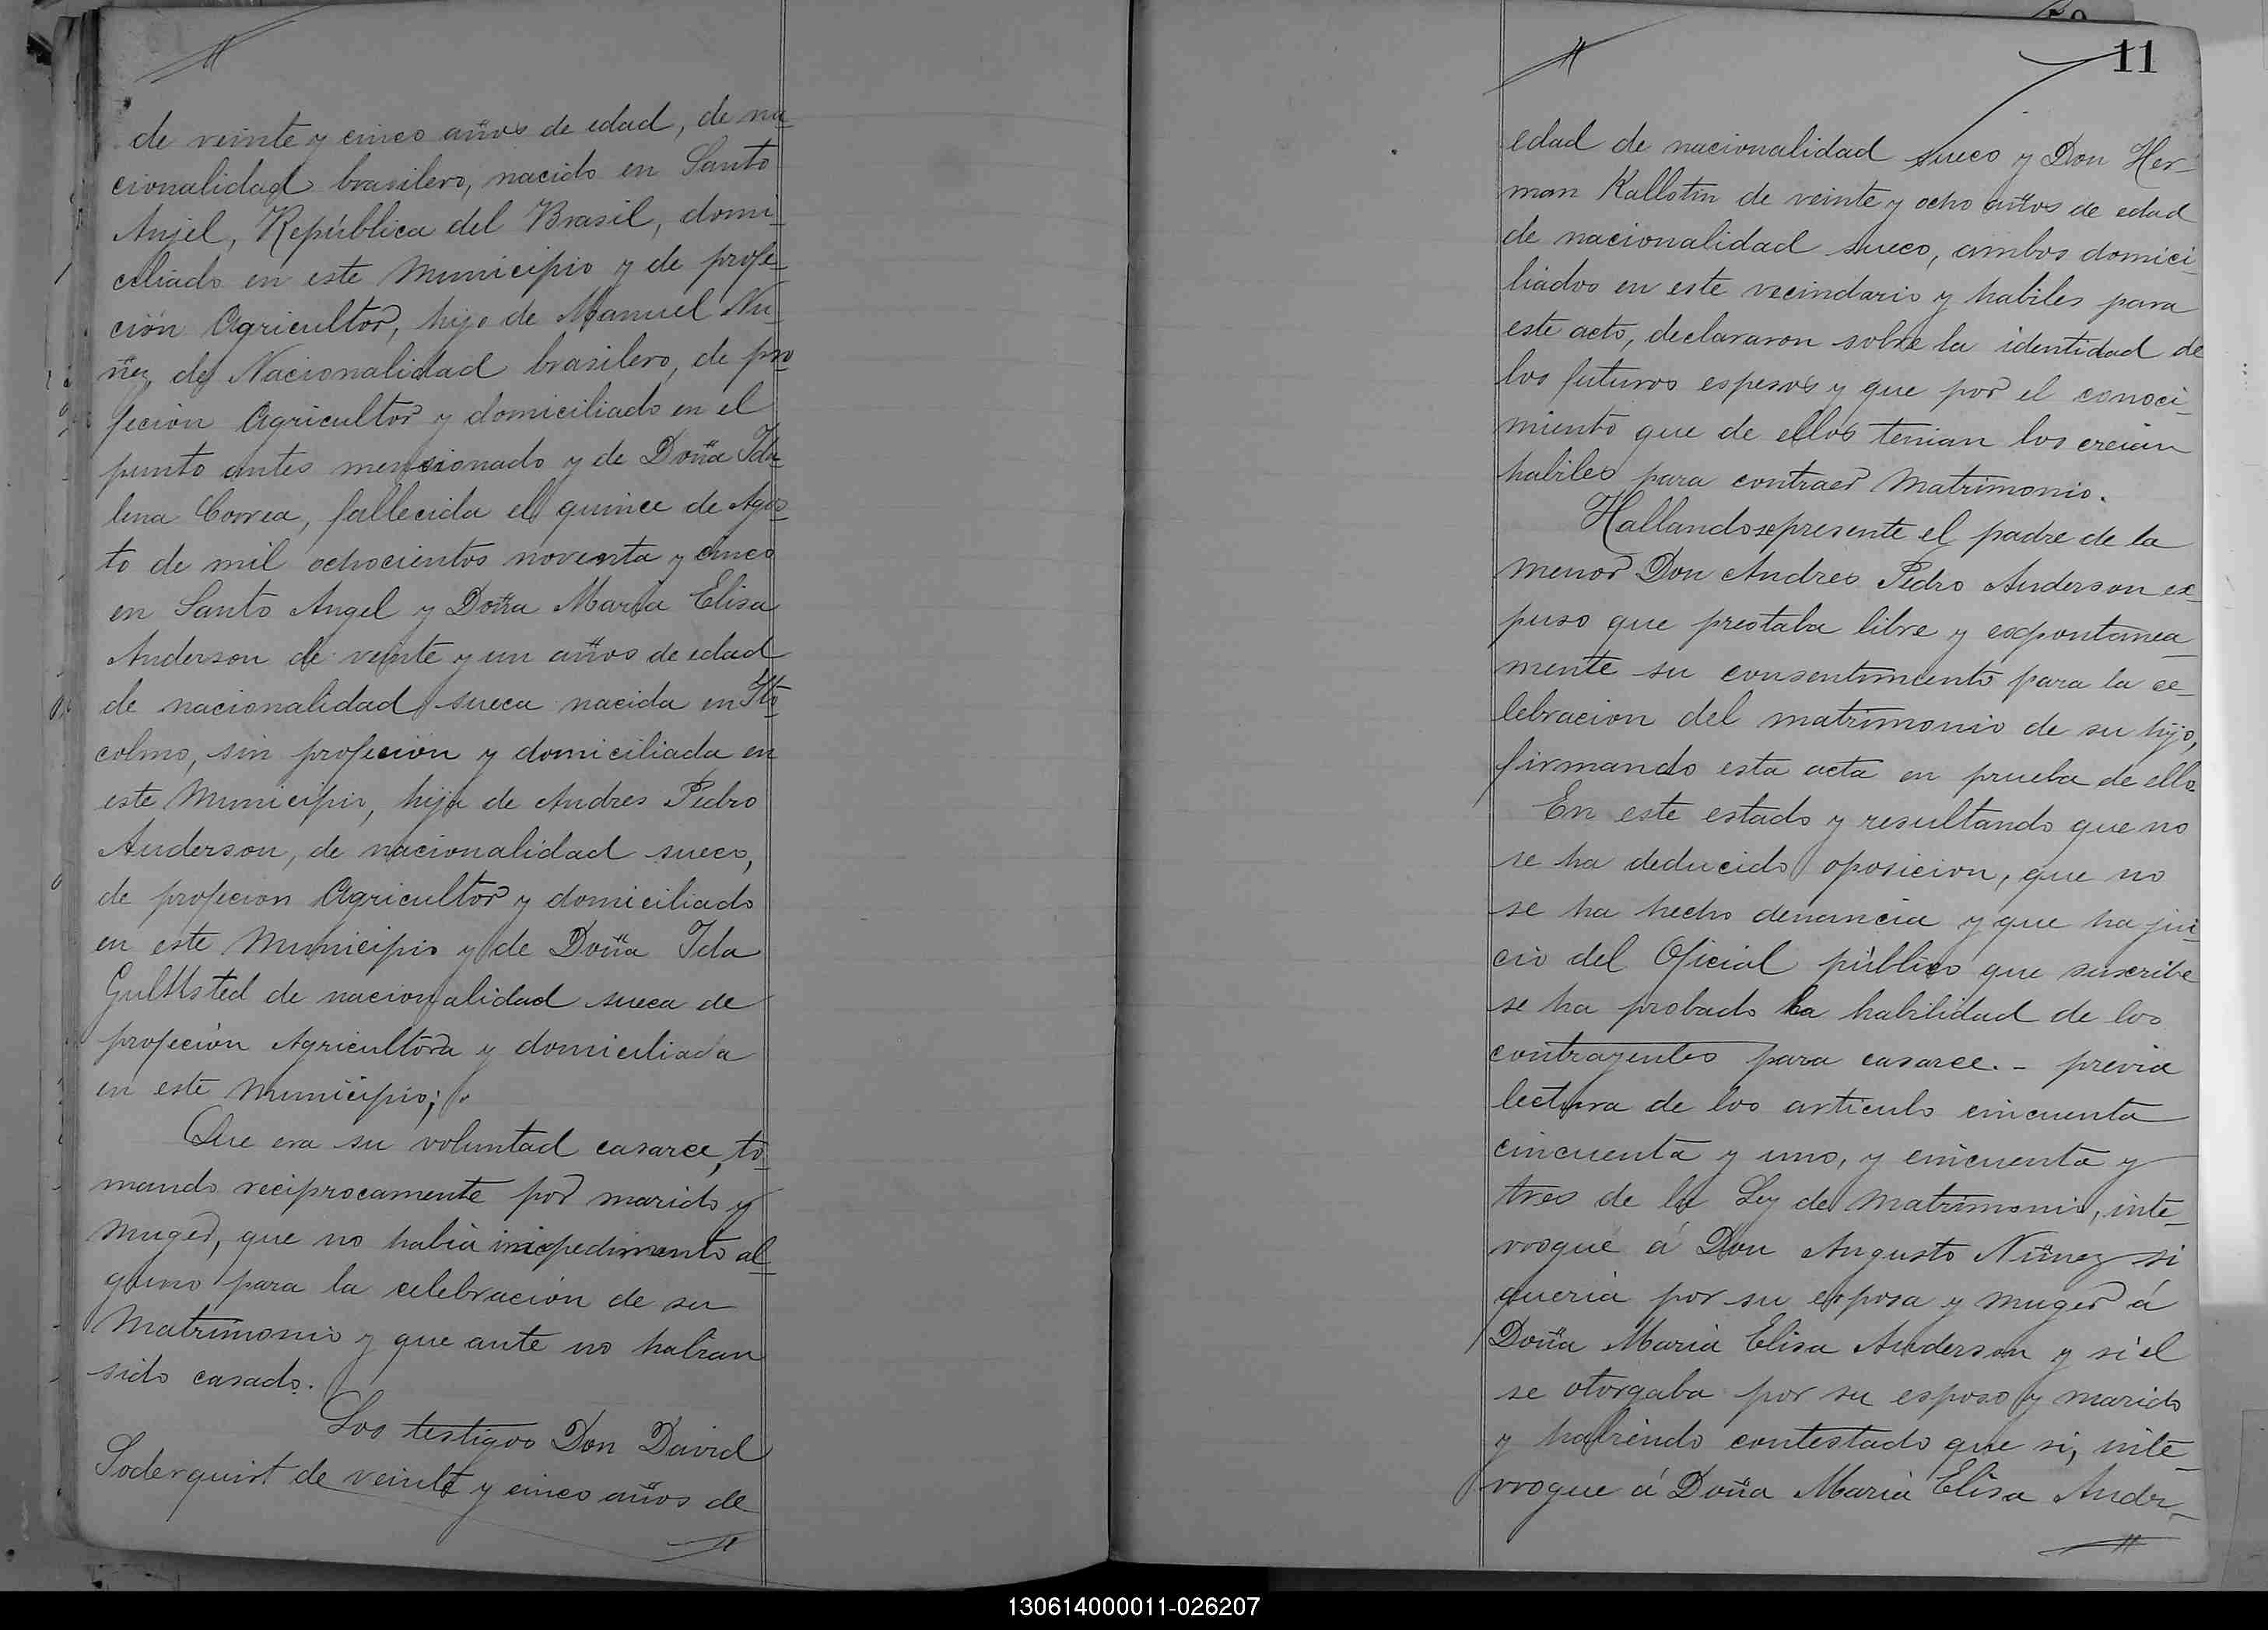 de veinte y cinco años de edad, de na-
cionalidad brasilero, nacido en Santo
Anjel, República del Brasil, domi-
ciliado en este Municipio y de profe-
ción Agricultor, hijo de Manuel Nu-
ñez, de Nacionalidad brasilero, de pro
fecion Agricultor y domiciliado en el
punto antes mencionado y de Doña Ida
lena Correa, fallecida el quince de Agos-
to de mil ochocientos noventa y cinco
en Santo Angel y Doña Maria Elisa
Anderson de veinte y un años de edad
de nacionalidad sueca nacida en Sto-
colmo, sin profecion y domiciliada en
este Municipio, hija de Andres Pedro
Anderson, de nacionalidad sueco,
de profecion Agricultor y domiciliado
en este Municipio y de Doña Ida
de nacionalidad sueca de
profeción Agricultora y domiciliada
en este Municipio;
Que era su voluntad casarce, to-
mando reciprocamente por marido y
muger, que no habia impedimento al-
guno para la celebración de su
Matrimonio y que ante no habian
sido casado.
Los testigos Don David
Soderquist de veinte y cinco años de
11
edad de nacionalidad sueco y Don Her-
man Kallotin de veinte y ocho años de edad
de nacionalidad sueco, ambos domici-
liados en este vecindario y habiles para
este acto, declararon sobre la identidad de
los futuros esposos y que por el conoci-
miento que de ellos tenian los creian
habiles para contraer Matrimonio.
Hallandose presente el padre de la
menor Don Andres Pedro Anderson ex-
puso que prestaba libre y expontanea-
mente su consentimiento para la ce-
lebracion del matrimonio de su hijo,
firmando esta acta en prueba de ello
En este estado y resultando que no
se ha deducido oposicion, que no
se ha hecho denuncia y que ha jui-
cio del Oficial público que suscribe
se ha probado la habilidad de los
contrayentes para casarce. - previa
lectura de los articulo cincuenta
cincuenta y uno, y cincuenta y
tres de la Ley de Matrimonio, inte-
rrogué á Don Augusto Núñez si
queria por su esposa y muger á
Doña Maria Elisa Anderson y si él
se otorgaba por su esposo y marido
y habiendo contestado que si, inte-
rrogue á Doña Maria Elisa Ander-
130614000011-026207